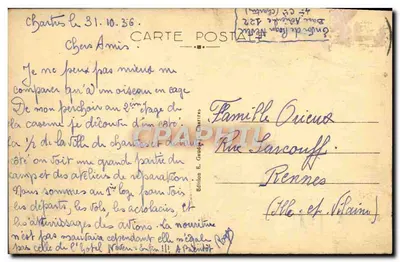 Chartres le 31.10.36
Chers Amis.
CARTE POSTALE
Je ne peux pas mieux me
comparer qu'à un oiseau en cage
De mon perchoir au 2ème étage de
la caserne je découvre d'un côté
la 1/2 de la ville de chartres de l'autre
côté on voit une grande partie du
camp et des ateliers de réparation.
Nous sommes au 1er loge pour voir
les départs, les vols, les acrobaties, et
les atterrissages des avions. La nourriture
n'est pas mauvaise cependant elle n'égale
pas celle de l'hôtel enfin !!! A bientôt
Famille Orieux
Rue Surcouff
Rennes
(Ille-et-Vilaine)
Edition E.
Chartres
CPARAMA